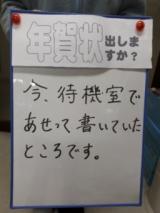 年賀状出しま
すか？
今、待機室で
あせって書いていた
ところです。